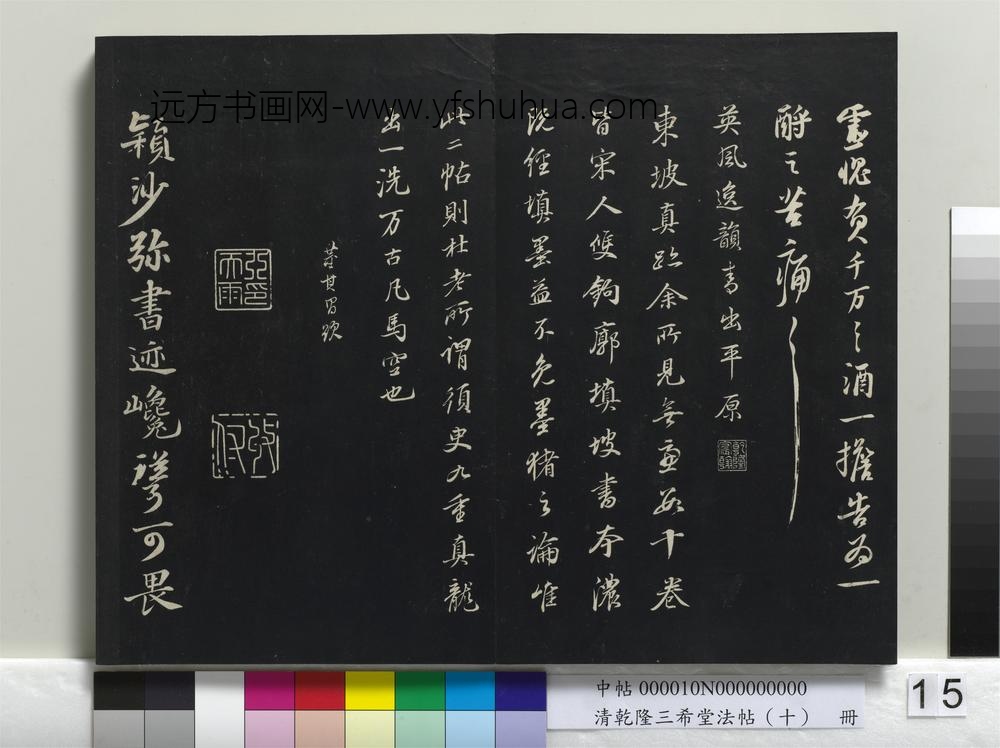 靈愧負千万〻酒一擔告為一
酹之苦痛〻
英風逸韻書出平原
東坡真跡余所見無慮數十卷
皆宋人雙鉤廓填坡書本濃
既經填墨益不免墨猪之論唯
此二帖則杜老所謂須臾九重真龍
出一洗万古凡馬空也
董其昌題
穎沙弥書迹巉聳可畏
远方书画网-www.yfshuhua.com
中帖 000010N000000000
清乾隆三希堂法帖(十) 冊
15